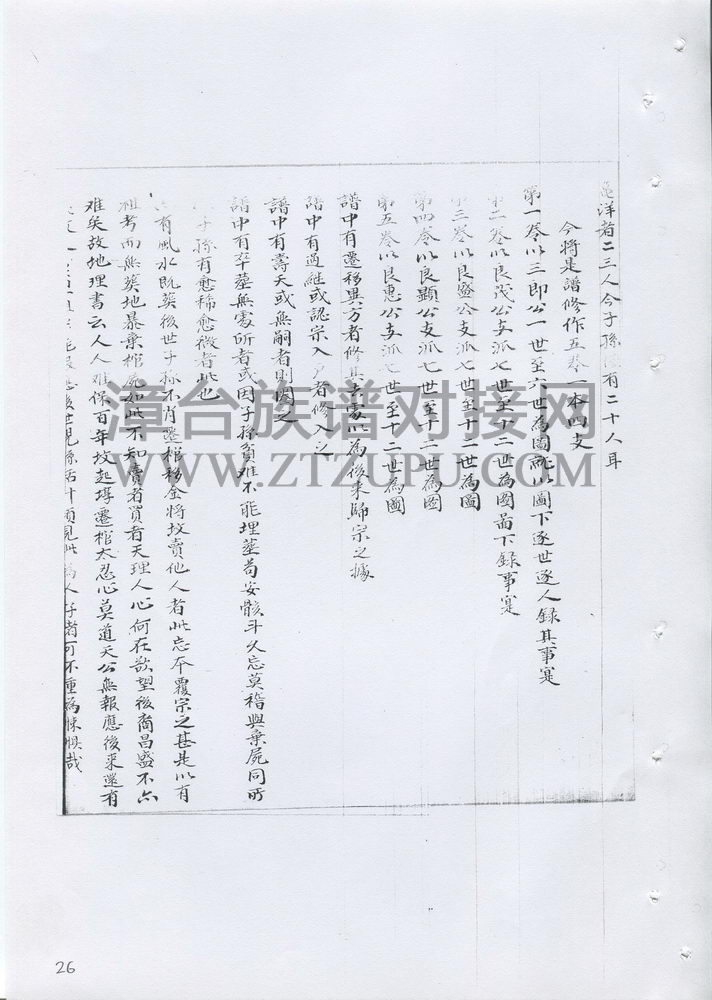 龜洋者二三人今子孫有二十人耳
今將是譜修作五卷一本四支
第一卷以三郎公一世至六世為圖以圖下逐世逐人錄其事寔
第二卷以良茂公支派七世至十二世為圖啚下錄事寔
第三卷以良盛公支派七世至十二世為圖
第四卷以良顯公支派七世至十二世為圖
第五卷以良惠公支派七世至十二世為圖
譜中有遷移異方者修其去處以為後来歸宗之據
譜中有過継或認宗入户者修入之
譜中有壽夭或無嗣者則因之
譜中有卒塟無處所者或因子孫貧难不能埋塟苟安骸斗久忘莫稽與棄屍同所
子孫有愈稀愈微者此也
有風水既葬後世子孫不肖遷棺移金將坟賣他人者此忘本覆宗之甚是以有
祖考而無葬地暴棄棺屍如此不知賣者買者天理人心何在欲望後裔昌盛不亦
难矣故地理書云人人难保百年坟起塟遷棺太忍心莫道天公無報應後来還有
後世見孫話計須見此為人子者可不重為悚惧哉
漳台族谱对接网
WWW.ZTZUPU.COM
26